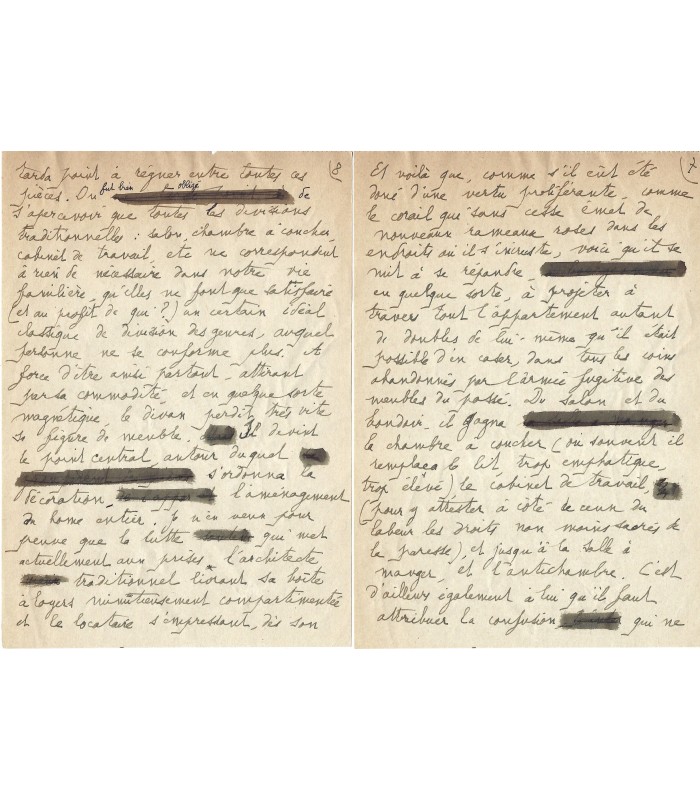 8
tarda point à régner entre toutes ces
pièces. On fut bien obligé de
s'apercevoir que toutes les divisions
traditionnelles : salon, chambre à coucher,
cabinet de travail, etc ne correspondent
à rien de nécessaire dans notre vie
familière, qu'elles ne font que satisfaire
(et au profit de qui ?) un certain idéal
classique de division des genres, auquel
personne ne se conforme plus. A
force d'être ainsi partout, attirant
par sa commodité, et en quelque sorte
magnétique, le divan perdit très vite
sa figure de meuble. Il devint
le point central autour duquel
s'ordonna la
décoration, l'aménagement
du home entier. Je n'en veux pour
preuve que la lutte qui met
actuellement aux prises l'architecte
traditionnel livrant sa boîte
à loyers minutieusement compartimentée
et le locataire s'empressant, dès son
7
Et voilà que, comme s'il eût été
doué d'une vertu proliférante, comme
le corail qui sans cesse émet de
nouveaux rameaux roses dans les
endroits où il s'incruste, voici qu'il se
mit à se répandre
en quelque sorte, à projeter à
travers tout l'appartement autant
de doubles de lui-même qu'il était
possible d'en caser, dans tous les coins
abandonnés par l'armée fugitive des
meubles du passé. Du salon et du
boudoir, il gagna
la chambre à coucher (où souvent il
remplaça le lit, trop emphatique,
trop élevé) le cabinet de travail
(pour y attester à côté de ceux du
labeur les droits non moins sacrés de
la paresse), et jusqu'à la salle à
manger, et l'antichambre. C'est
d'ailleurs également à lui qu'il faut
attribuer la confusion qui ne